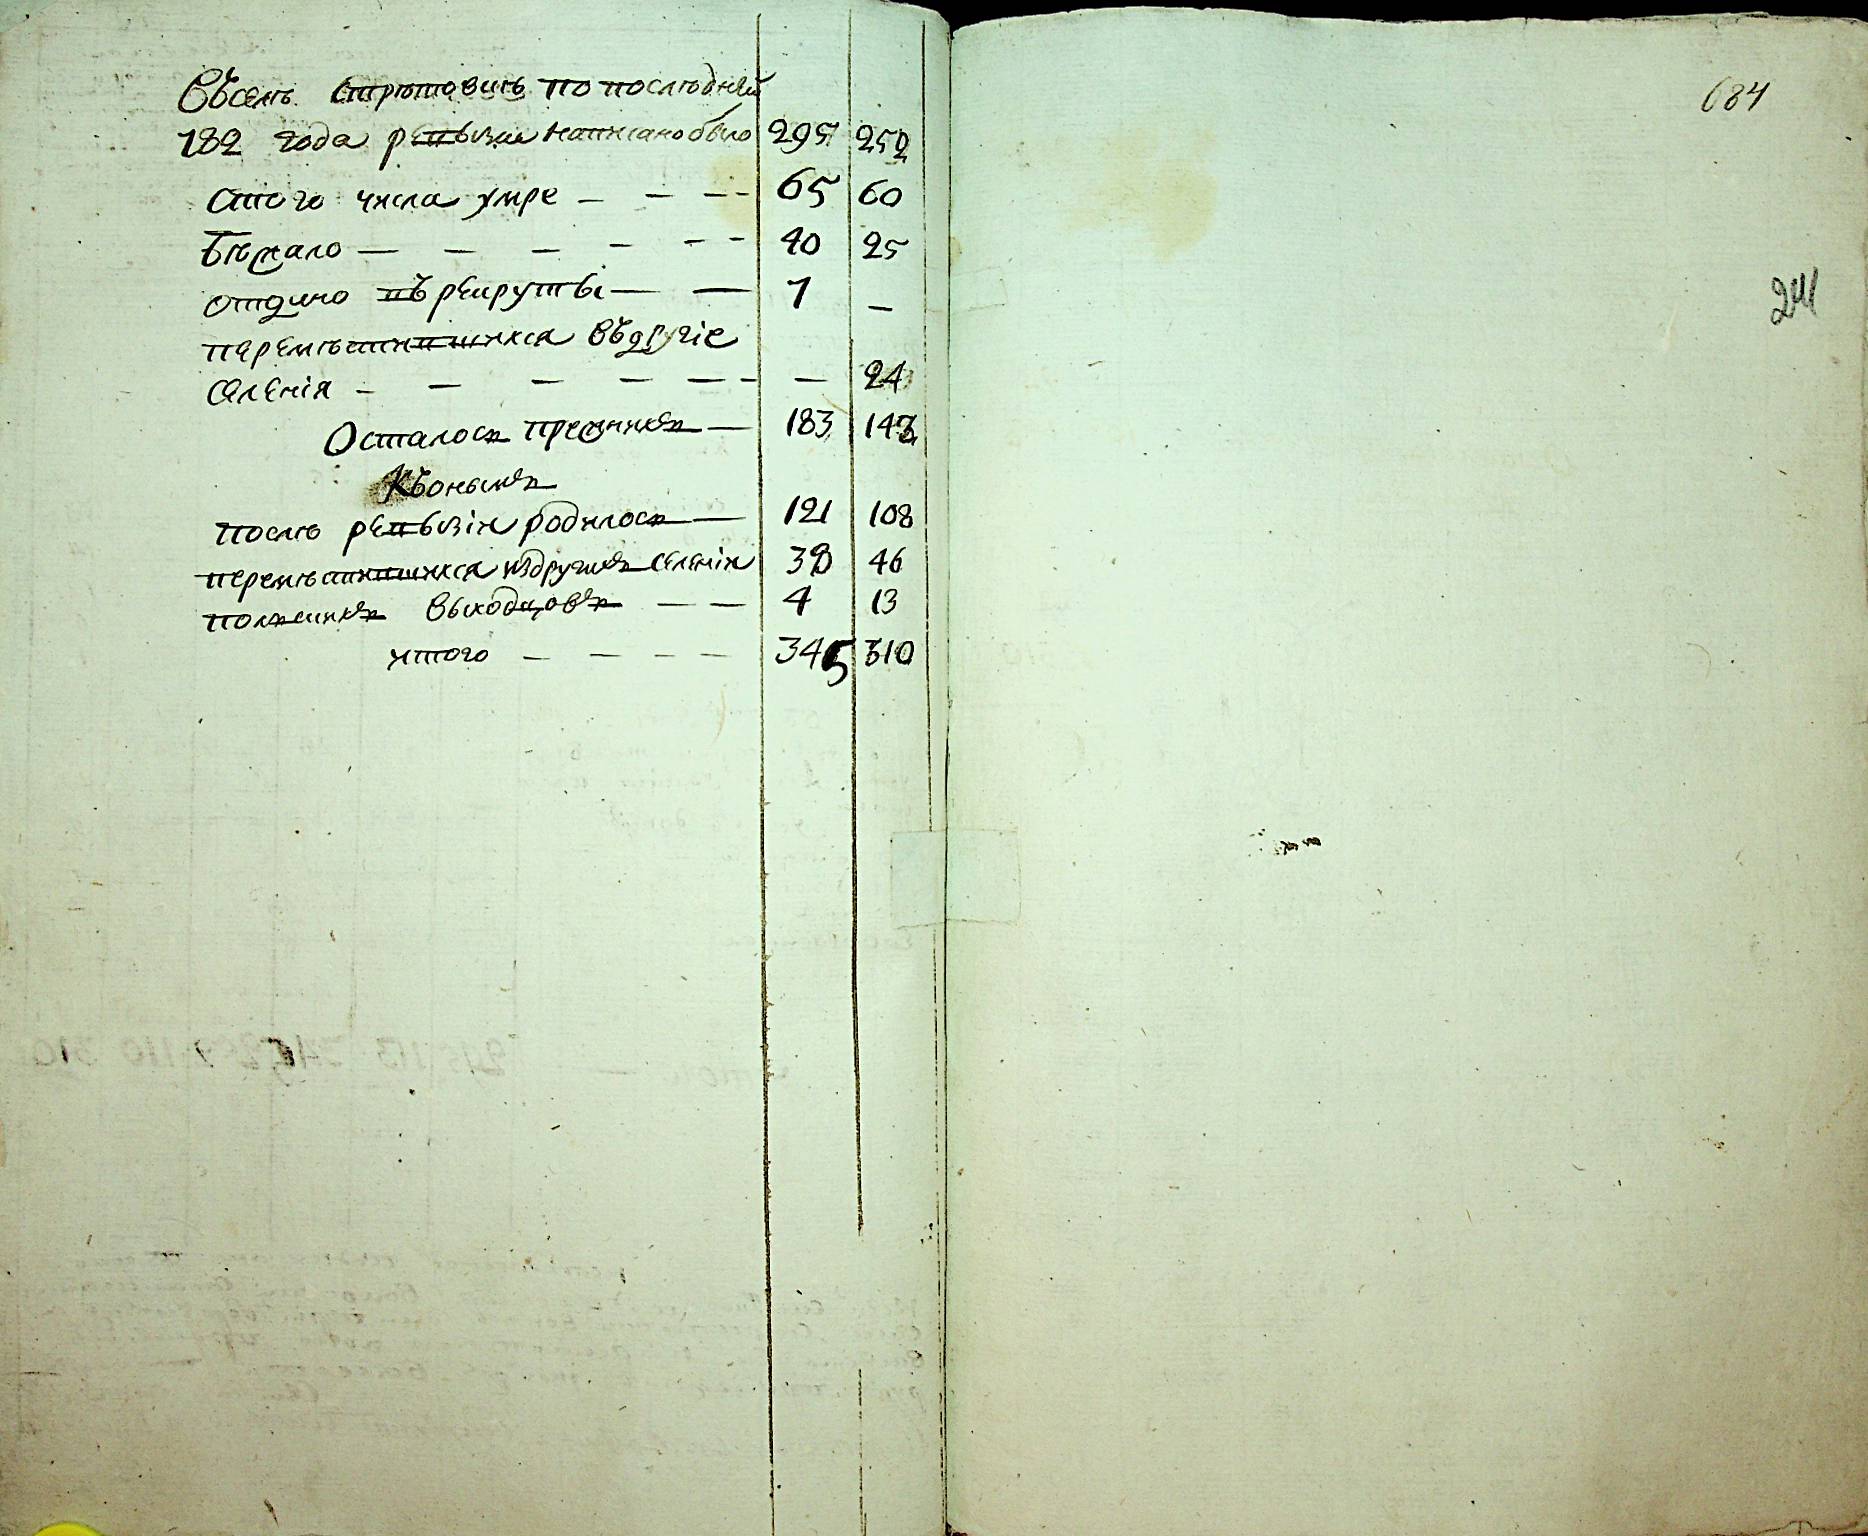 Въселѣ Стрѣтовкѣ по последней
182 года ревизии написано было 295 252
стого числа умре — — — — 65 60
Бѣжало — — — — — — 40 25
отдано въ рекруты — — 1 —
перемѣстившихся въ другіе
селенія — — — — — — — 24
Осталось прежнихъ — 183 143
Къонымъ
послѣ ревизіи родилось — 121 108
перемѣстившихся издругихъ селеніи 39 46
полскихъ выходцовъ — — 4 13
итого — — — — 345 310
684
241